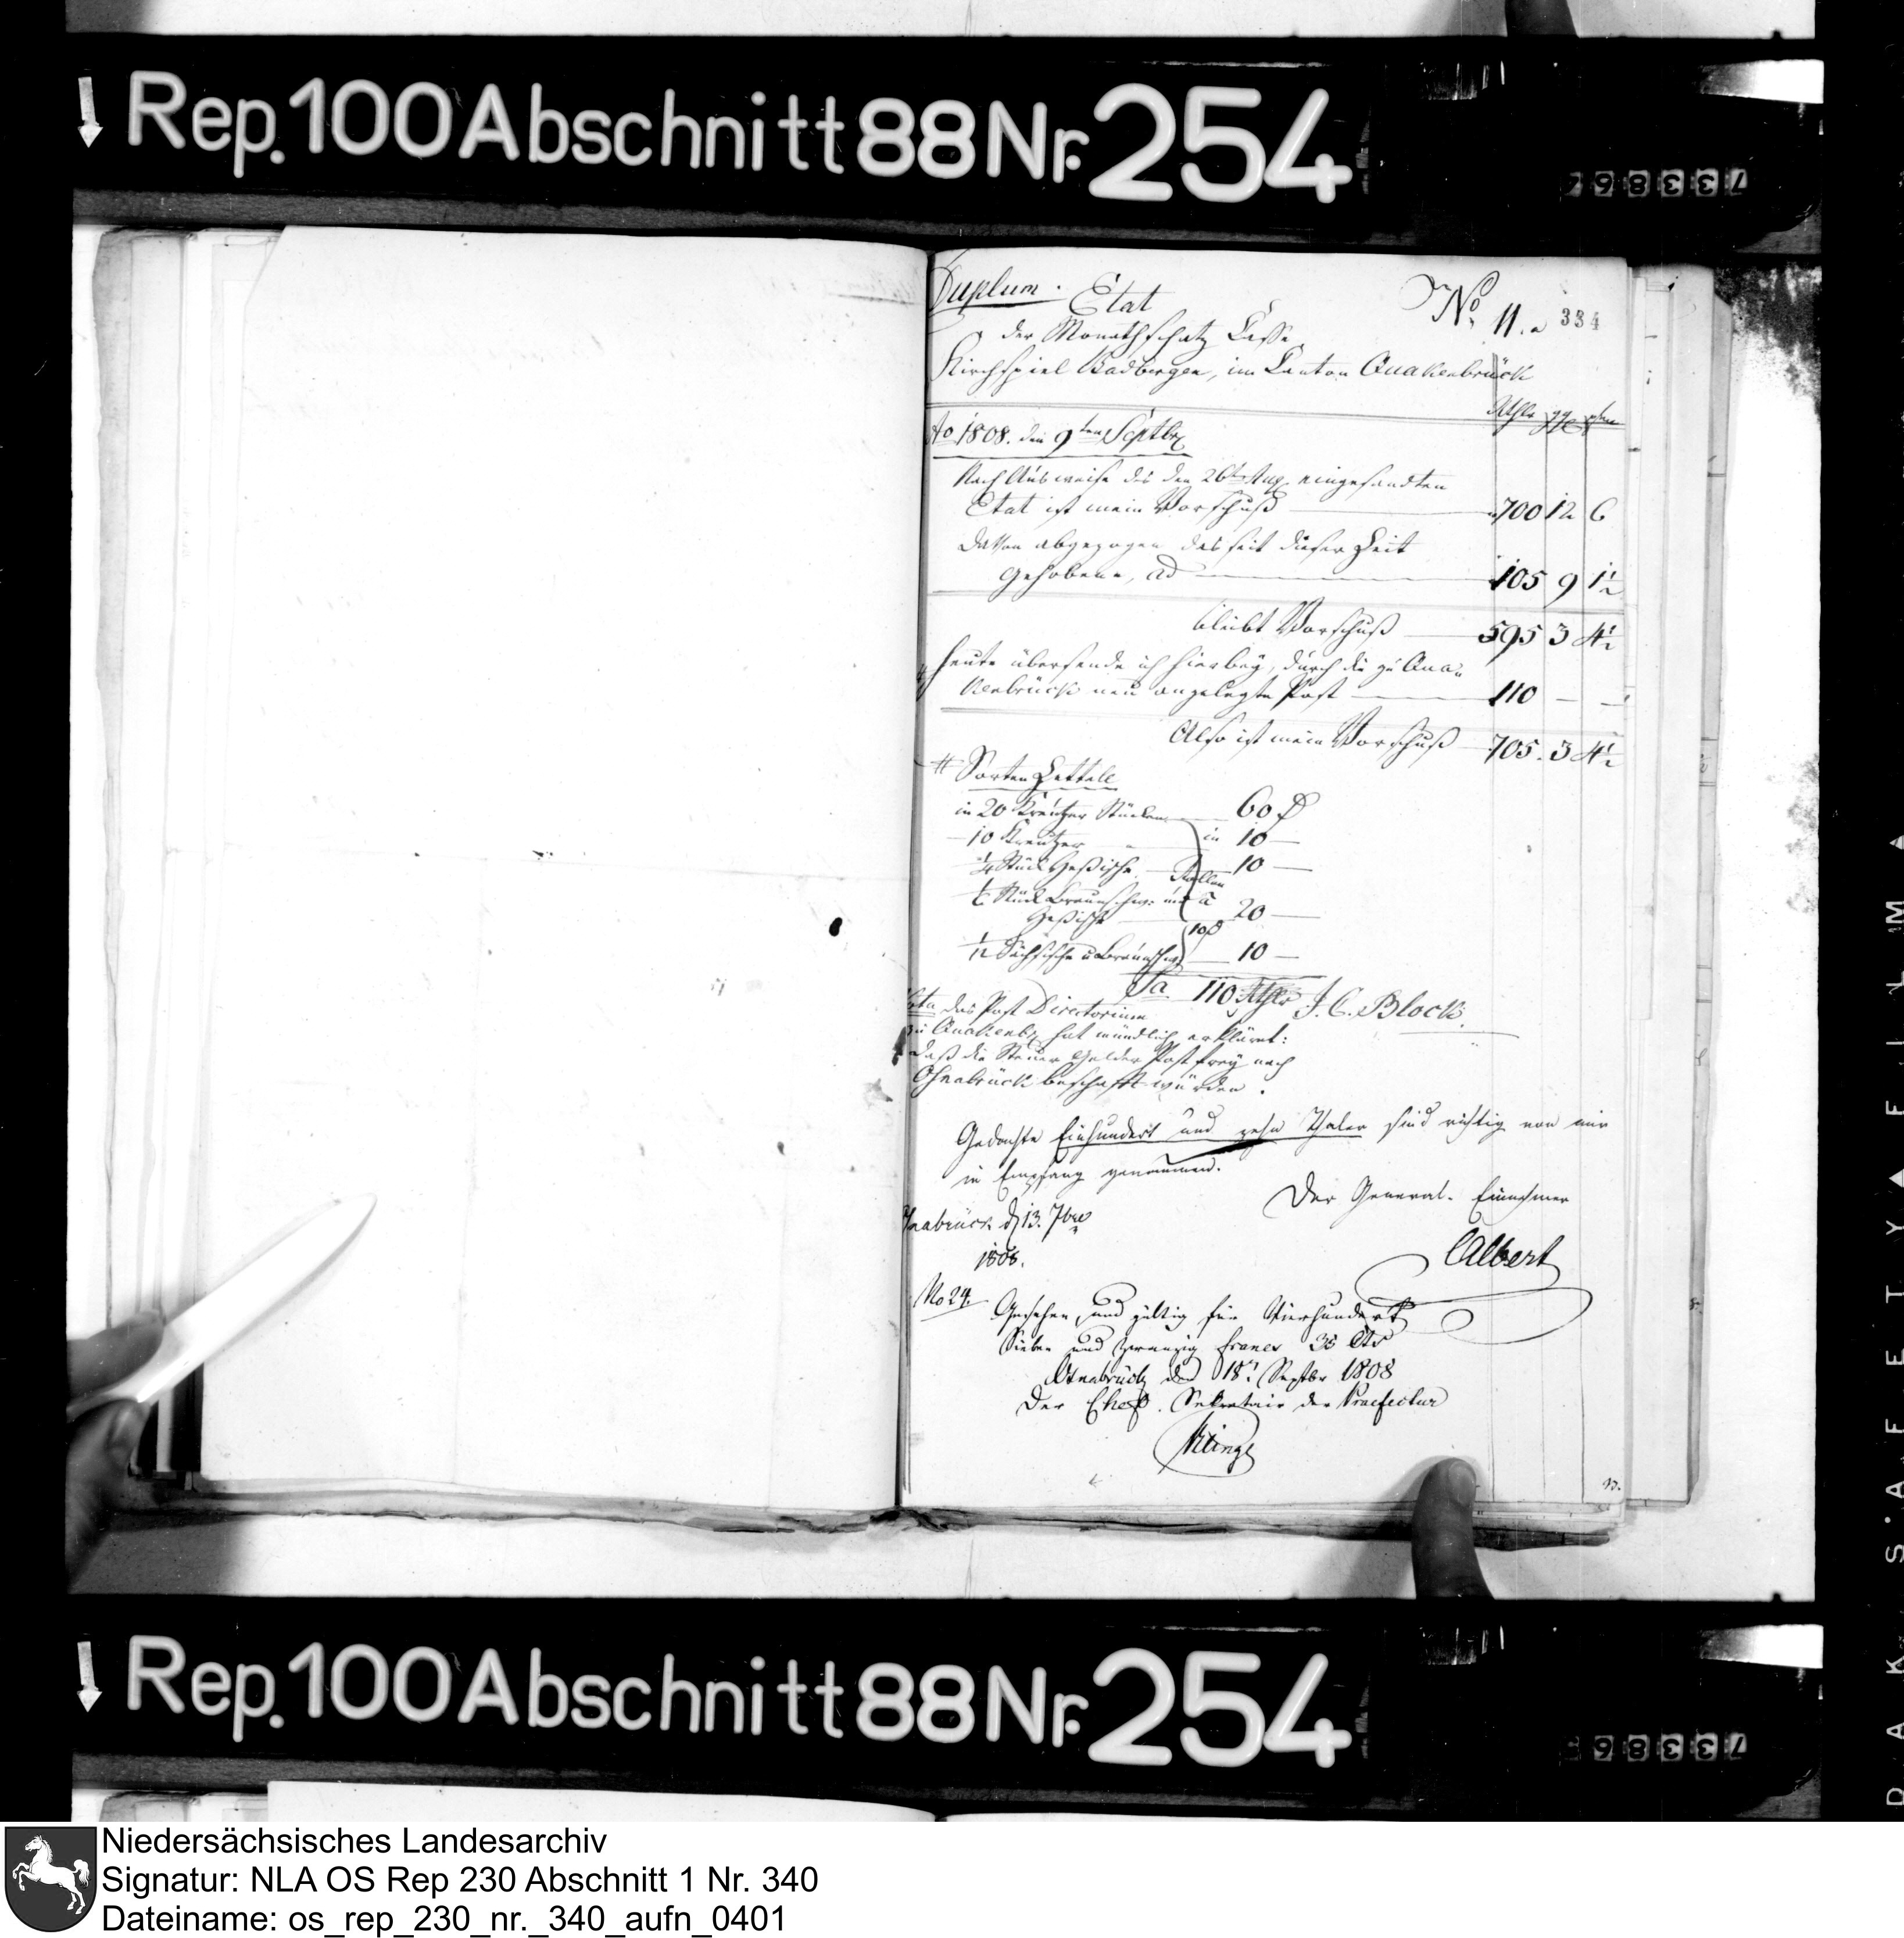 Rep. 100 Abschnitt 88 Nr. 254
733867
Duplum. Etat No. 11.a 334
der Monathschatz Casse
Kirchspiel Badbergen, im Canton Quakenbrück
Rthlr ggl
Ao 1808. den 9ten Septbr
Nach Ausweise des den 26t Aug. eingesandten
Etat ist mein Vorschuß 700 12 6
Davon abgezogen das seit dieser Zeit
gehobene, ad 105 9 1½
bleibt Vorschuß 595 3 4½
# heute übersende ich hierbey, durch die zu Qua=
kenbrück neu angelegte Post 110 — —
Also ist mein Vorschuß 705. 3 4½
# Sorten Zettell
in 20 Kreutzer Stücken 60
10 Kreutzer in 10 —
¼ Stück Heßische Rollen 10 —
Stück Braunschw: und à
Heßische 20 —
10
1/12 Sächsische u Braunschw 10 —
Sa 110 Rthlr J. C. Block.
das Post Directorium
zu Quakenbr hat mündlich erklärt:
daß die Steuer Gelder Post frey nach
Osnabrück beschafft würden.
Gedachte Einhundert und zehn Thaler sind richtig von mir
in Empfang genommen.
Der General-Einnehmer
Osnabrück d 13. 7bre
1808.
CAlbert
No 24.
Gesehen, und gültig für Vierhundert
Sieben und zwanzig francs 35 Cts
Osnabrück den 18t Septbr 1808
Der Chef. Sekretair der Praefectur
Klinge
Rep. 100 Abschnitt 88 Nr. 254
733867
SAFETY FILM
Niedersächsisches Landesarchiv
Signatur: NLA OS Rep 230 Abschnitt 1 Nr. 340
Dateiname: os_rep_230_nr._340_aufn_0401